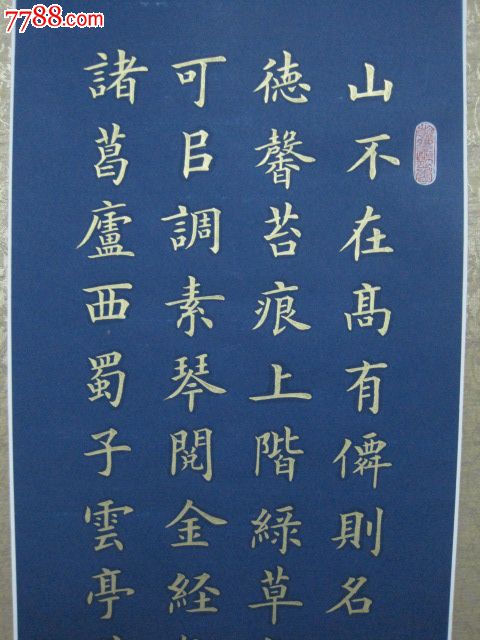 7788.com
山不在高有僊則名
德馨苔痕上階綠草
可㠯調素琴閱金経
諸葛廬西蜀子雲亭